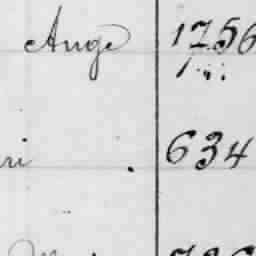 Ange 1756
ri . 634